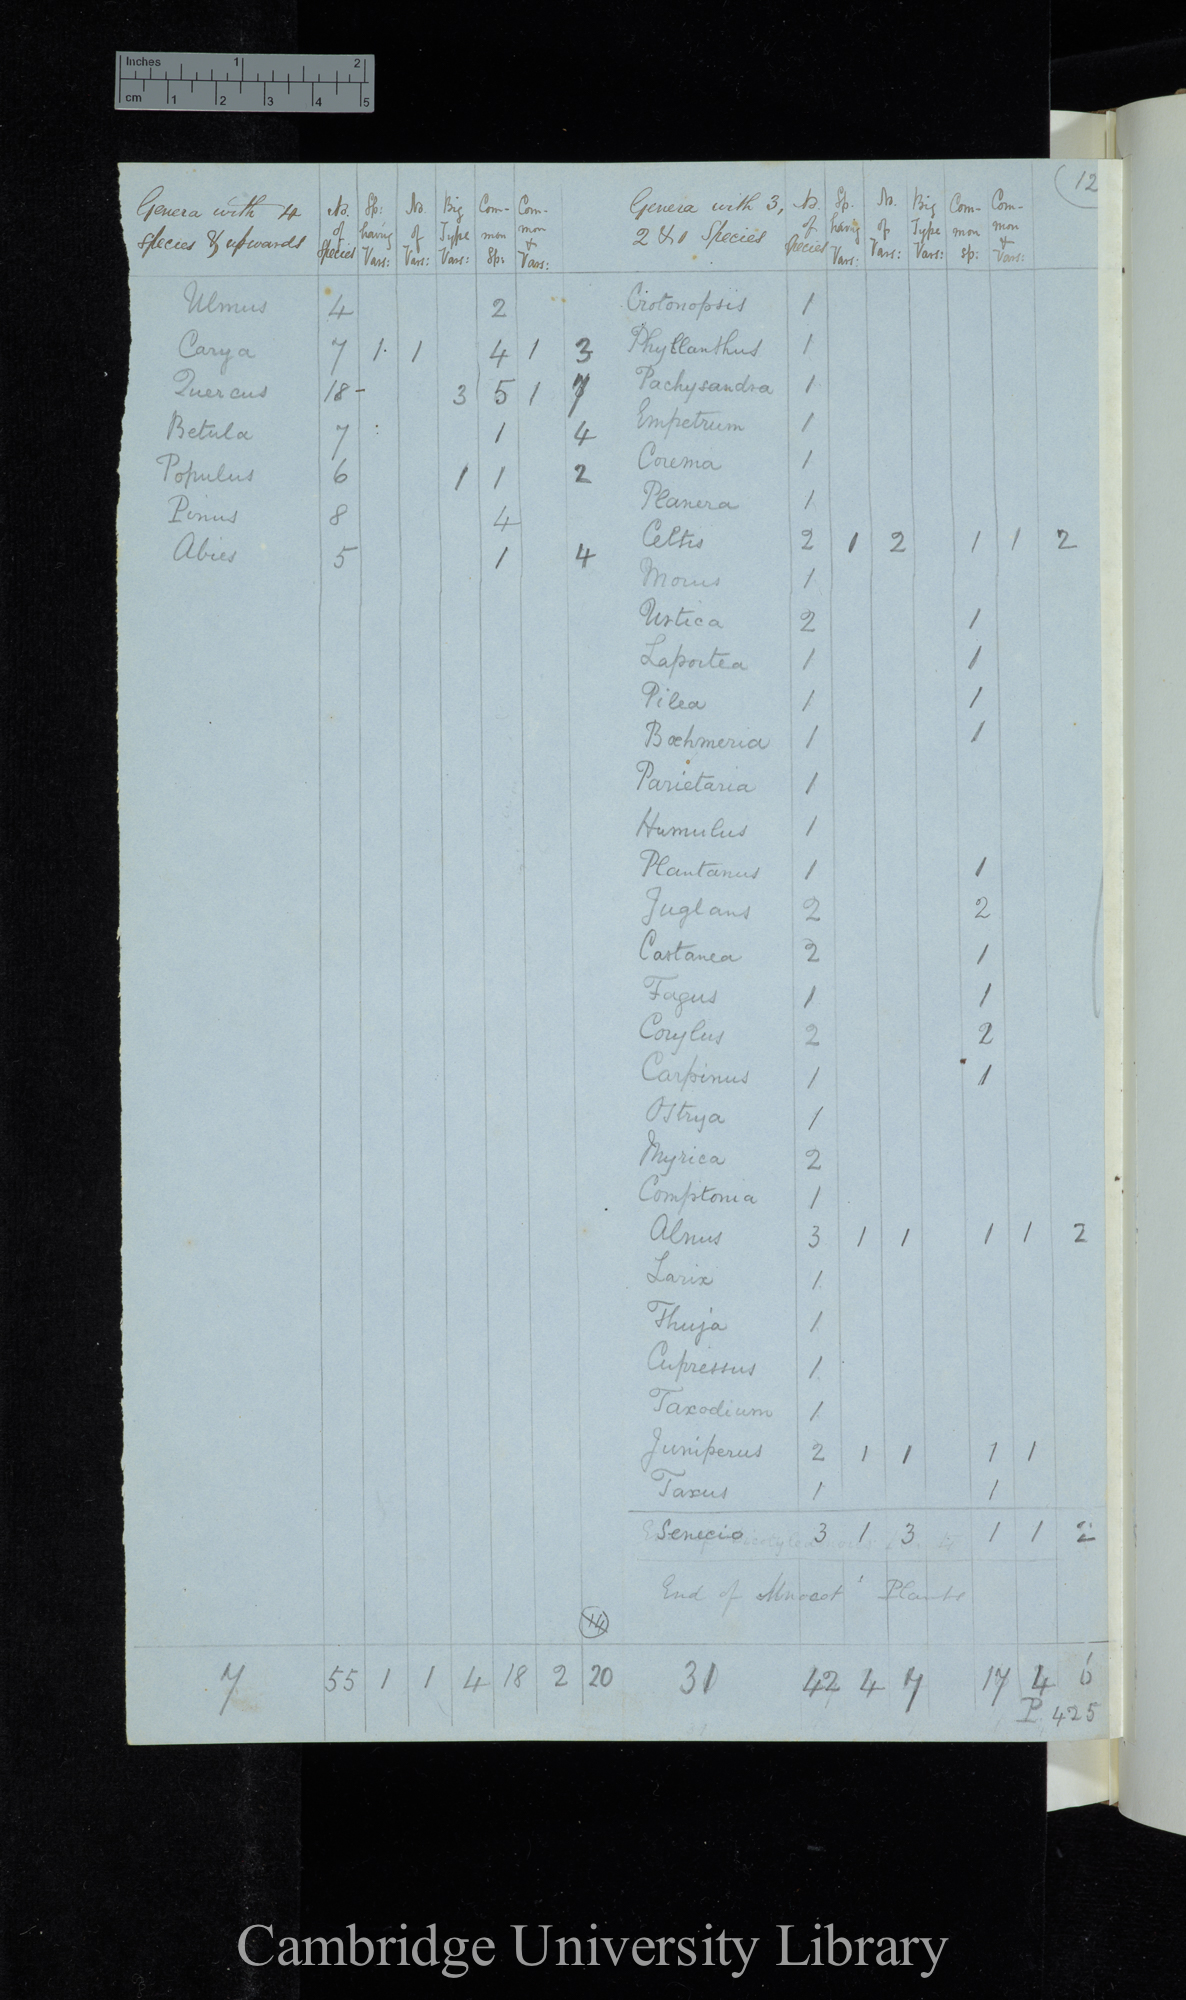 Inches 1 2
cm 1 2 3 4 5
(12
Genera with 4 species & upwards No. of Species Sp: having Vars: No. of Vars: Big Type Vars: Com- mon Sp: Com- mon & Vars:
Ulmus 4 2
Carya 7 1 1 4 1 3
Quercus 18 - 3 5 1 7
Betula 7 1 4
Populus 6 1 1 2
Pinus 8 4
Abies 5 1 4
14
7 55 1 1 4 18 2 20
Genera with 3, 2 & 1 Species No. of Species Sp. having Vars: No. of Vars: Big Type Vars: Com- mon sp: Com- mon & Vars:
Crotonopsis 1
Phyllanthus 1
Pachysandra 1
Empetrum 1
Corema 1
Planera 1
Celtis 2 1 2 1 1 2
Morus 1
Urtica 2 1
Laportea 1 1
Pilea 1 1
Bœhmeria 1 1
Parietaria 1
Humulus 1
Plantanus 1 1
Juglans 2 2
Castanea 2 1
Fagus 1 1
Corylus 2 2
Carpinus 1 1
Ostrya 1
Myrica 2
Comptonia 1
Alnus 3 1 1 1 1 2
Larix 1
Thuja 1
Cupressus 1
Taxodium 1
Juniperus 2 1 1 1 1
Taxus 1 1
Senecio 3 1 3 1 1 2
End of Plants
31 42 4 7 17 4 6
P. 425
Cambridge University Library